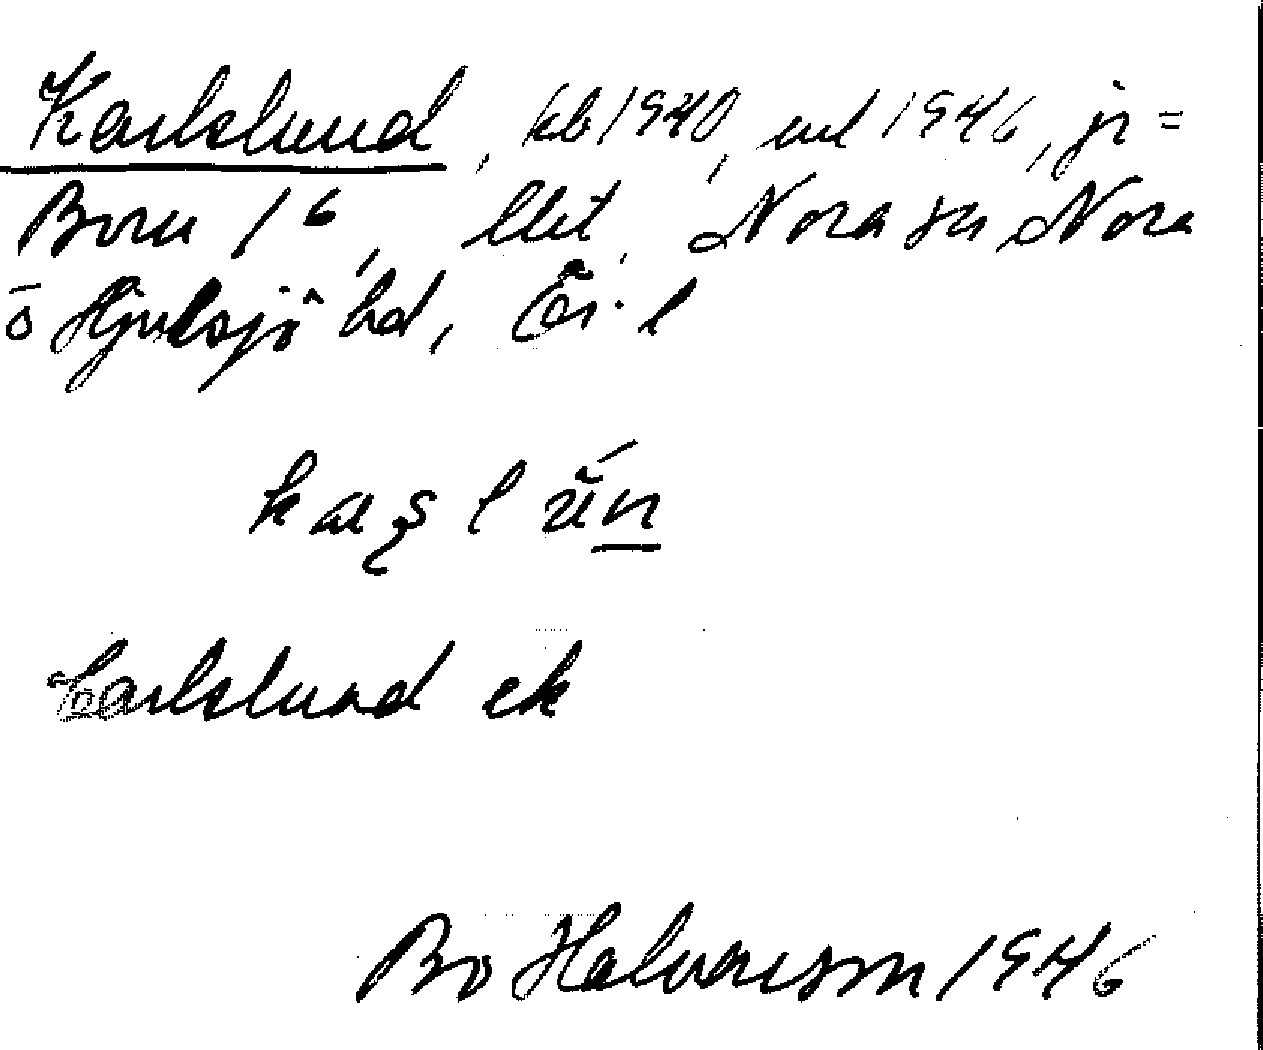 Karlslund, kb 1940, utt 1946, jr =
Born 1⁶, llet, Nora sn, Nora
o Hjulsjö hd, Ör. l
kaʂlùn
Carlslund ek
Bo Halvarson 1946